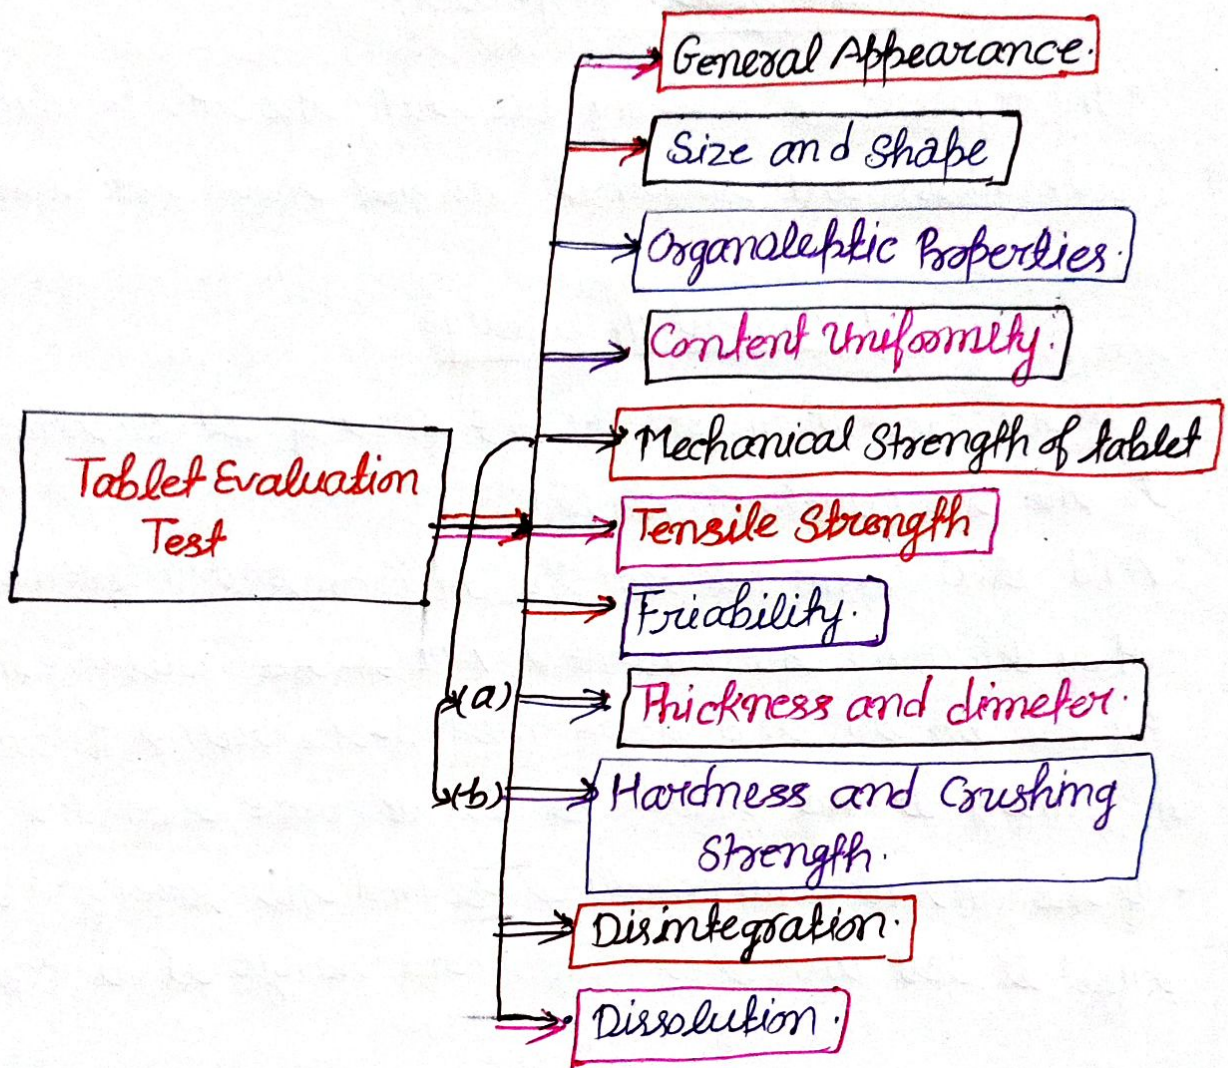 General Appearance.
Size and Shape
Organoleptic Properties.
Content Uniformity.
Mechanical Strength of tablet
Tablet Evaluation
Test
Tensile Strength
Friability.
(a)
Thickness and dimeter.
(b)
Hardness and Crushing
Strength.
Disintegration.
Dissolution.